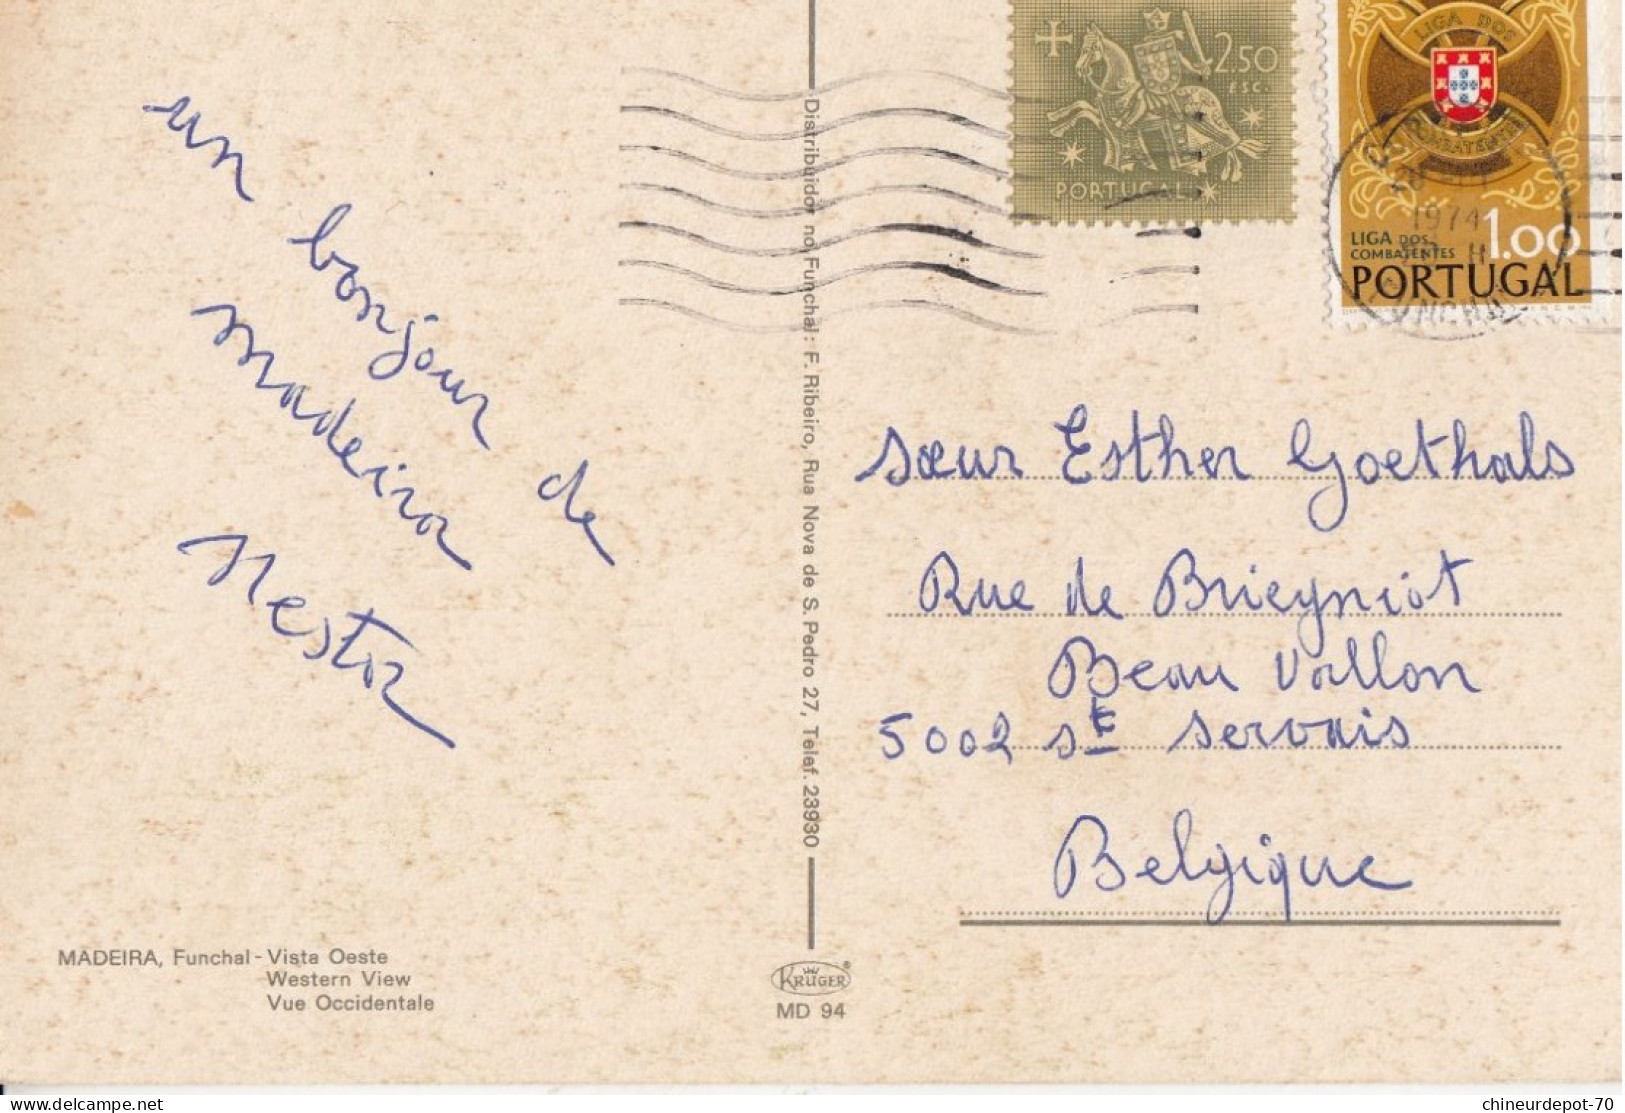 un bonjour de
Madeira
Nestor
MADEIRA, Funchal - Vista Oeste
Western View
Vue Occidentale
Distribuidor no Funchal: F. Ribeiro, Rua Nova de S. Pedro 27, Telef. 23930
KRÜGER®
MD 94
2.50
ESC.
PORTUGAL
LIGA DOS
COMBATENTES
1974
LIGA DOS
COMBATENTES
1.00
PORTUGAL
Sœur Esther Goethals
Rue de Brieyniot
Beau Vallon
5002 St Servais
Belgique
chineurdepot-70